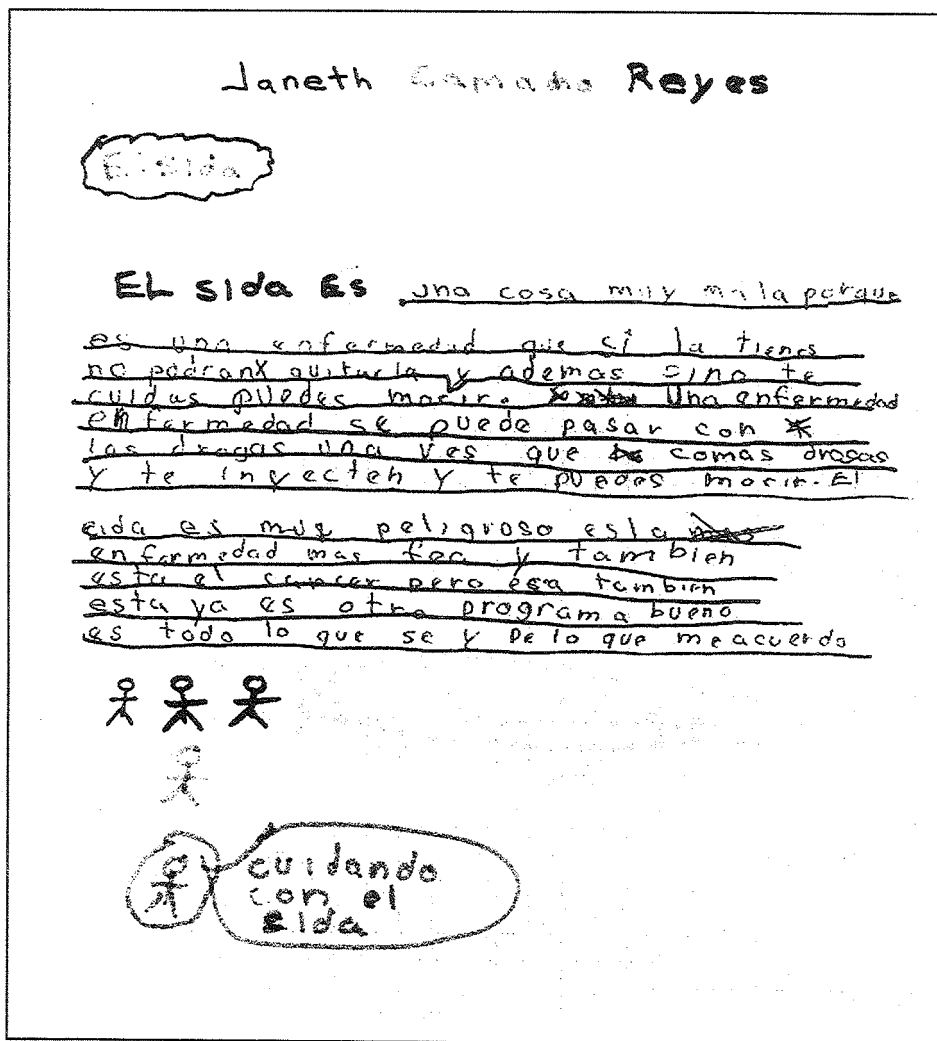 Janeth Camacho Reyes
El sida
EL sida Es una cosa muy mala porque
es una enfermedad que si la tienes
no podran quitarla y ademas sino te
cuidas puedes morir. Una enfermedad
enfermedad se puede pasar con
las drogas una ves que comas drogas
y te inyecten y te puedes morir. El
sida es muy peligroso es la
enfermedad mas fea y tambien
esta el cancer pero esa tambien
esta ya es otro programa bueno
es todo lo que se y De lo que me acuerdo
cuidando
con el
sida